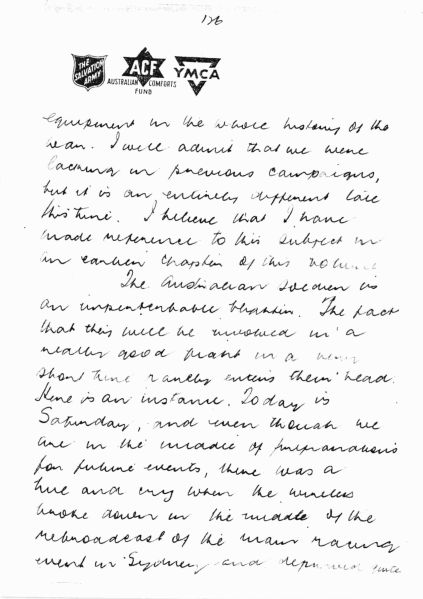 126
THE SALVATION ARMY
ACF
AUSTRALIAN COMFORTS FUND
YMCA
equipment in the whole history of the
war. I will admit that we were
lacking in previous campaigns,
but it is an entirely different tale
this time. I believe that I have
made reference to this subject in
an earlier chapter of this volume
The Australian soldier is
an unpenterbable blighter. The fact
that they will be involved in a
really good fight in a very
short time rarely enters their head.
Here is an instance. Today is
Saturday, and even though we
are in the middle of preparations
for future events, there was a
hue and cry when the wireless
broke down in the middle of the
rebroadcast of the main racing
event in Sydney and deprived